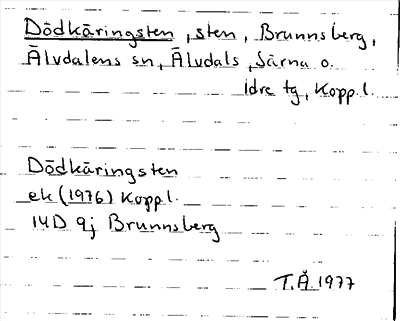 Dödkäringsten, sten, Brunnsberg,
Älvdalens sn, Älvdals, Särna o.
Idre tg, Kopp. l.
Dödkäringsten
ek (1976) Kopp l.
14D 9j Brunnsberg
T.Å. 1977